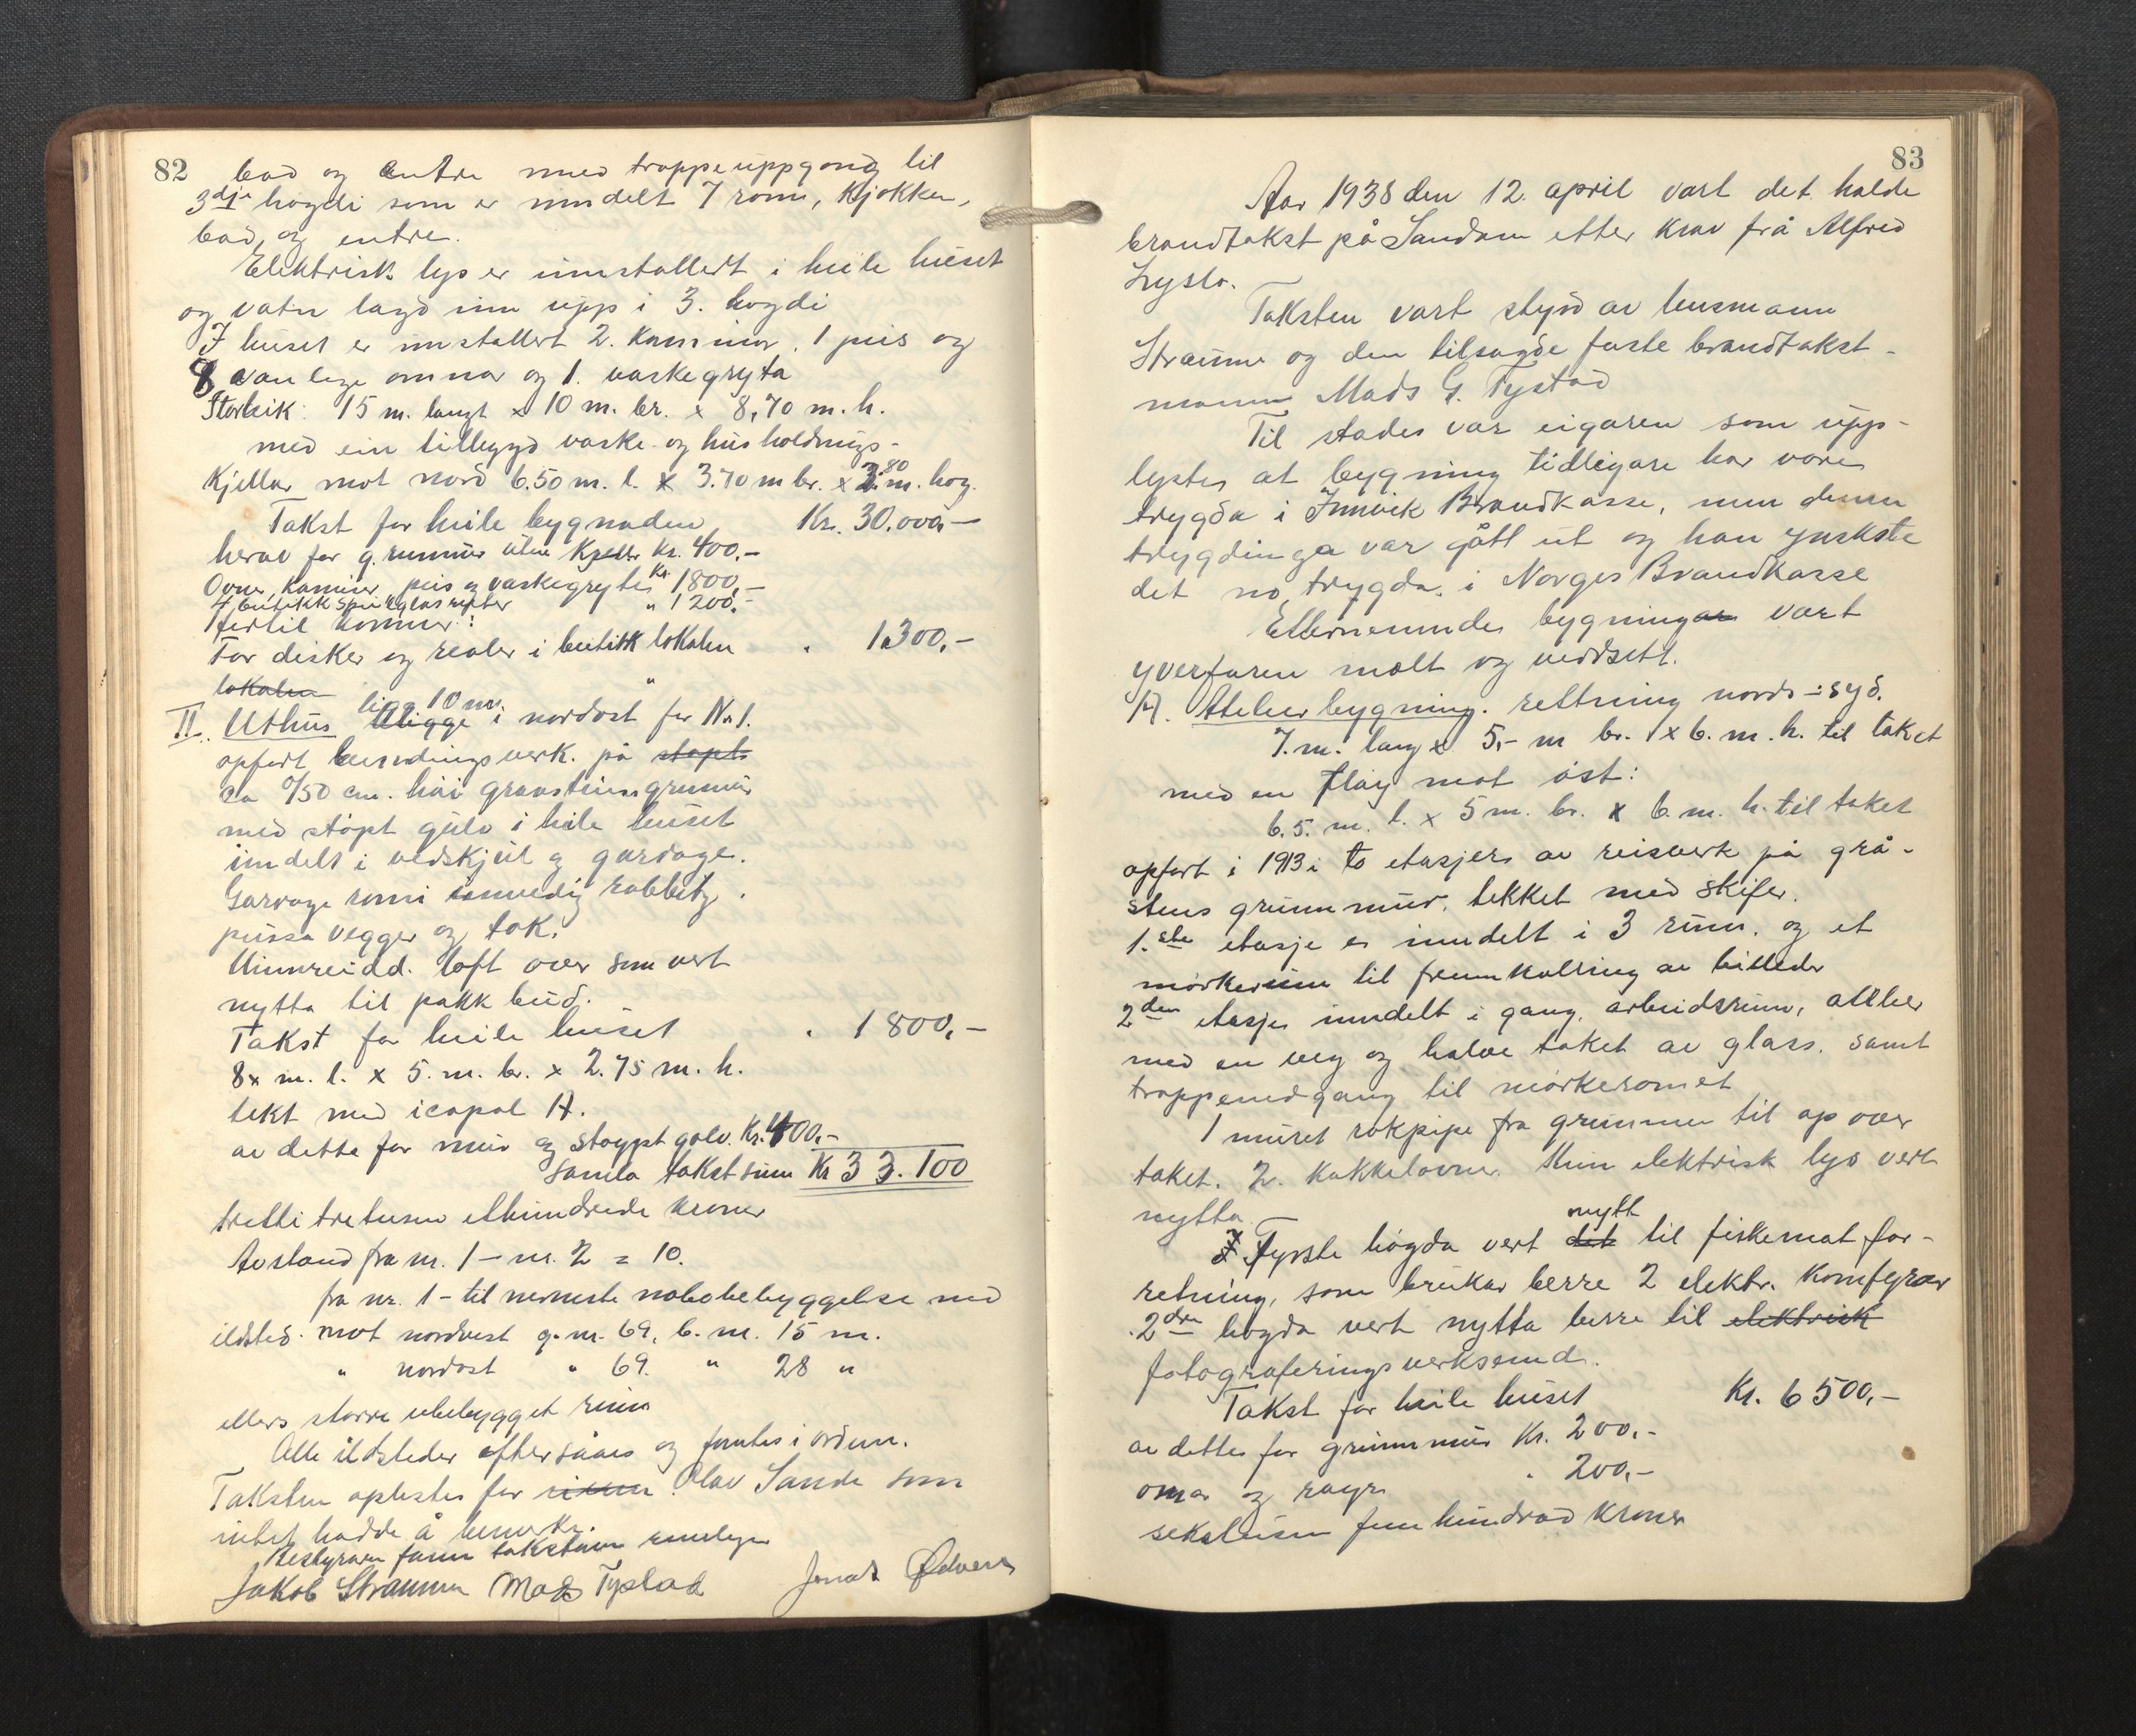 82
bad og entre med trappeuppgong til
3dje høgdi som er inndelt 7 rom, kjøkken,
bad, og entre.
Elektrisk lys er innstallert i heile huset
og vatn lagd inn upp i 3. høgdi
I huset er innstallert 2. kaminor, 1 peis og
8 vanlege omnar og 1. vaskegryta
Storleik: 15 m. langt x 10 m. br. x 8,70 m. h.
med ein tilbygd vaske og husholdnings-
kjellar mot nord 6.50 m. l. x 3.70 m br. x 2.80 m. høg.
Takst for heile bygnaden Kr. 30.000,-
herav for grunnmur uten kjellr kr. 400,-
Ovner, kaminer, peis og vaskegryte Kr. 1800,-
7 butikk speilglasruter " 1200,-
Hertil kommer:
For disker og reoler i butikk lokalen " 1300,-
lokalen
II. Uthus ligg 10 m. i nordost for No 1.
opført bindingsverk. på støpt
ca 0/50 cm. høi graasteinsgrunmur
med støpt gulv i hele huset
inndelt i vedskjul og garage.
Garage romi innvedig rabbitz
pussa vegger og tak.
Uinnreidd. loft over som vert
nytta til pakkbud.
Takst for heile huset " 1800,-
8x m. l. x 5. m. br. x 2.75 m. h.
tekt med icopal A.
av dette for mur og støypt golv. Kr. 400,-
Samla takstsum Kr 33.100
trettitretusen etthundrede kroner
Avstand fra nr. 1 – nr. 2 = 10.
fra nr. 1 - til nermeste nabobebyggelse med
ildsted. mot nordvest g.nr. 69, b.nr. 15 m.
" nordost " 69. " 28 "
ellers større ubebygget rum
Alle ildsteder eftersåaes og fantes i orden.
Taksten oplestes for Olav Sande som
intet hadde å bemerke.
Bestyraren fann takstane rimelege
Jakob Straume Mads Tystad Jonas Ødven
83
Aar 1938 den 12. april vart det halde
brandtakst på Sandane etter krav frå Alfred
Lyslo.
Taksten vart styrd av lensmann
Straume og den tilsagde faste brandtakst-
mann Mads G. Tystad
Til stades var eigaren som upp-
lystes at bygning tidligare har vore
trygda i Innvik Brandkasse, men denne
trygdinga var gått ut og han ynskte
det no trygda i Norges Brandkasse
Etternemnde bygningar vart
yverfaren mælt og verdsett.
A. Atelier bygning. rettning nord-:syd.
7. m. lang x 5,- m br. x 6. m. h. til taket
med en fløy mot øst:
6.5. m. l. x 5 m. br. x 6. m. h. til taket
opført i 1913 i to etasjers av reisverk på grå-
stens grunnmur, tekket med skifer.
1.ste etasje er inndelt i 3 rum. og et
mørkerum til fremkalling av billeder
2den etasje inndelt i gang, arbeidsrum, attlier
med en veg og halve taket av glass. samt
trappenedgang til mørkeromet
1 muret rökpipe fra grunnen til op over
taket. 2. kakkelovner. Kun elektrisk lys vert
nytta
I fyrste høgda vert det nytt til fiskemat for-
retning, som brukar berre 2 elektr. komfyrar
2dre høgda vert nytta berre til elektrisk
fotograferingsverksemd.
Takst for heile huset Kr. 6500,-
av dette for grunnmur Kr. 200,-
omnar og røyr " 200,-
sekstusen femhundrad kroner